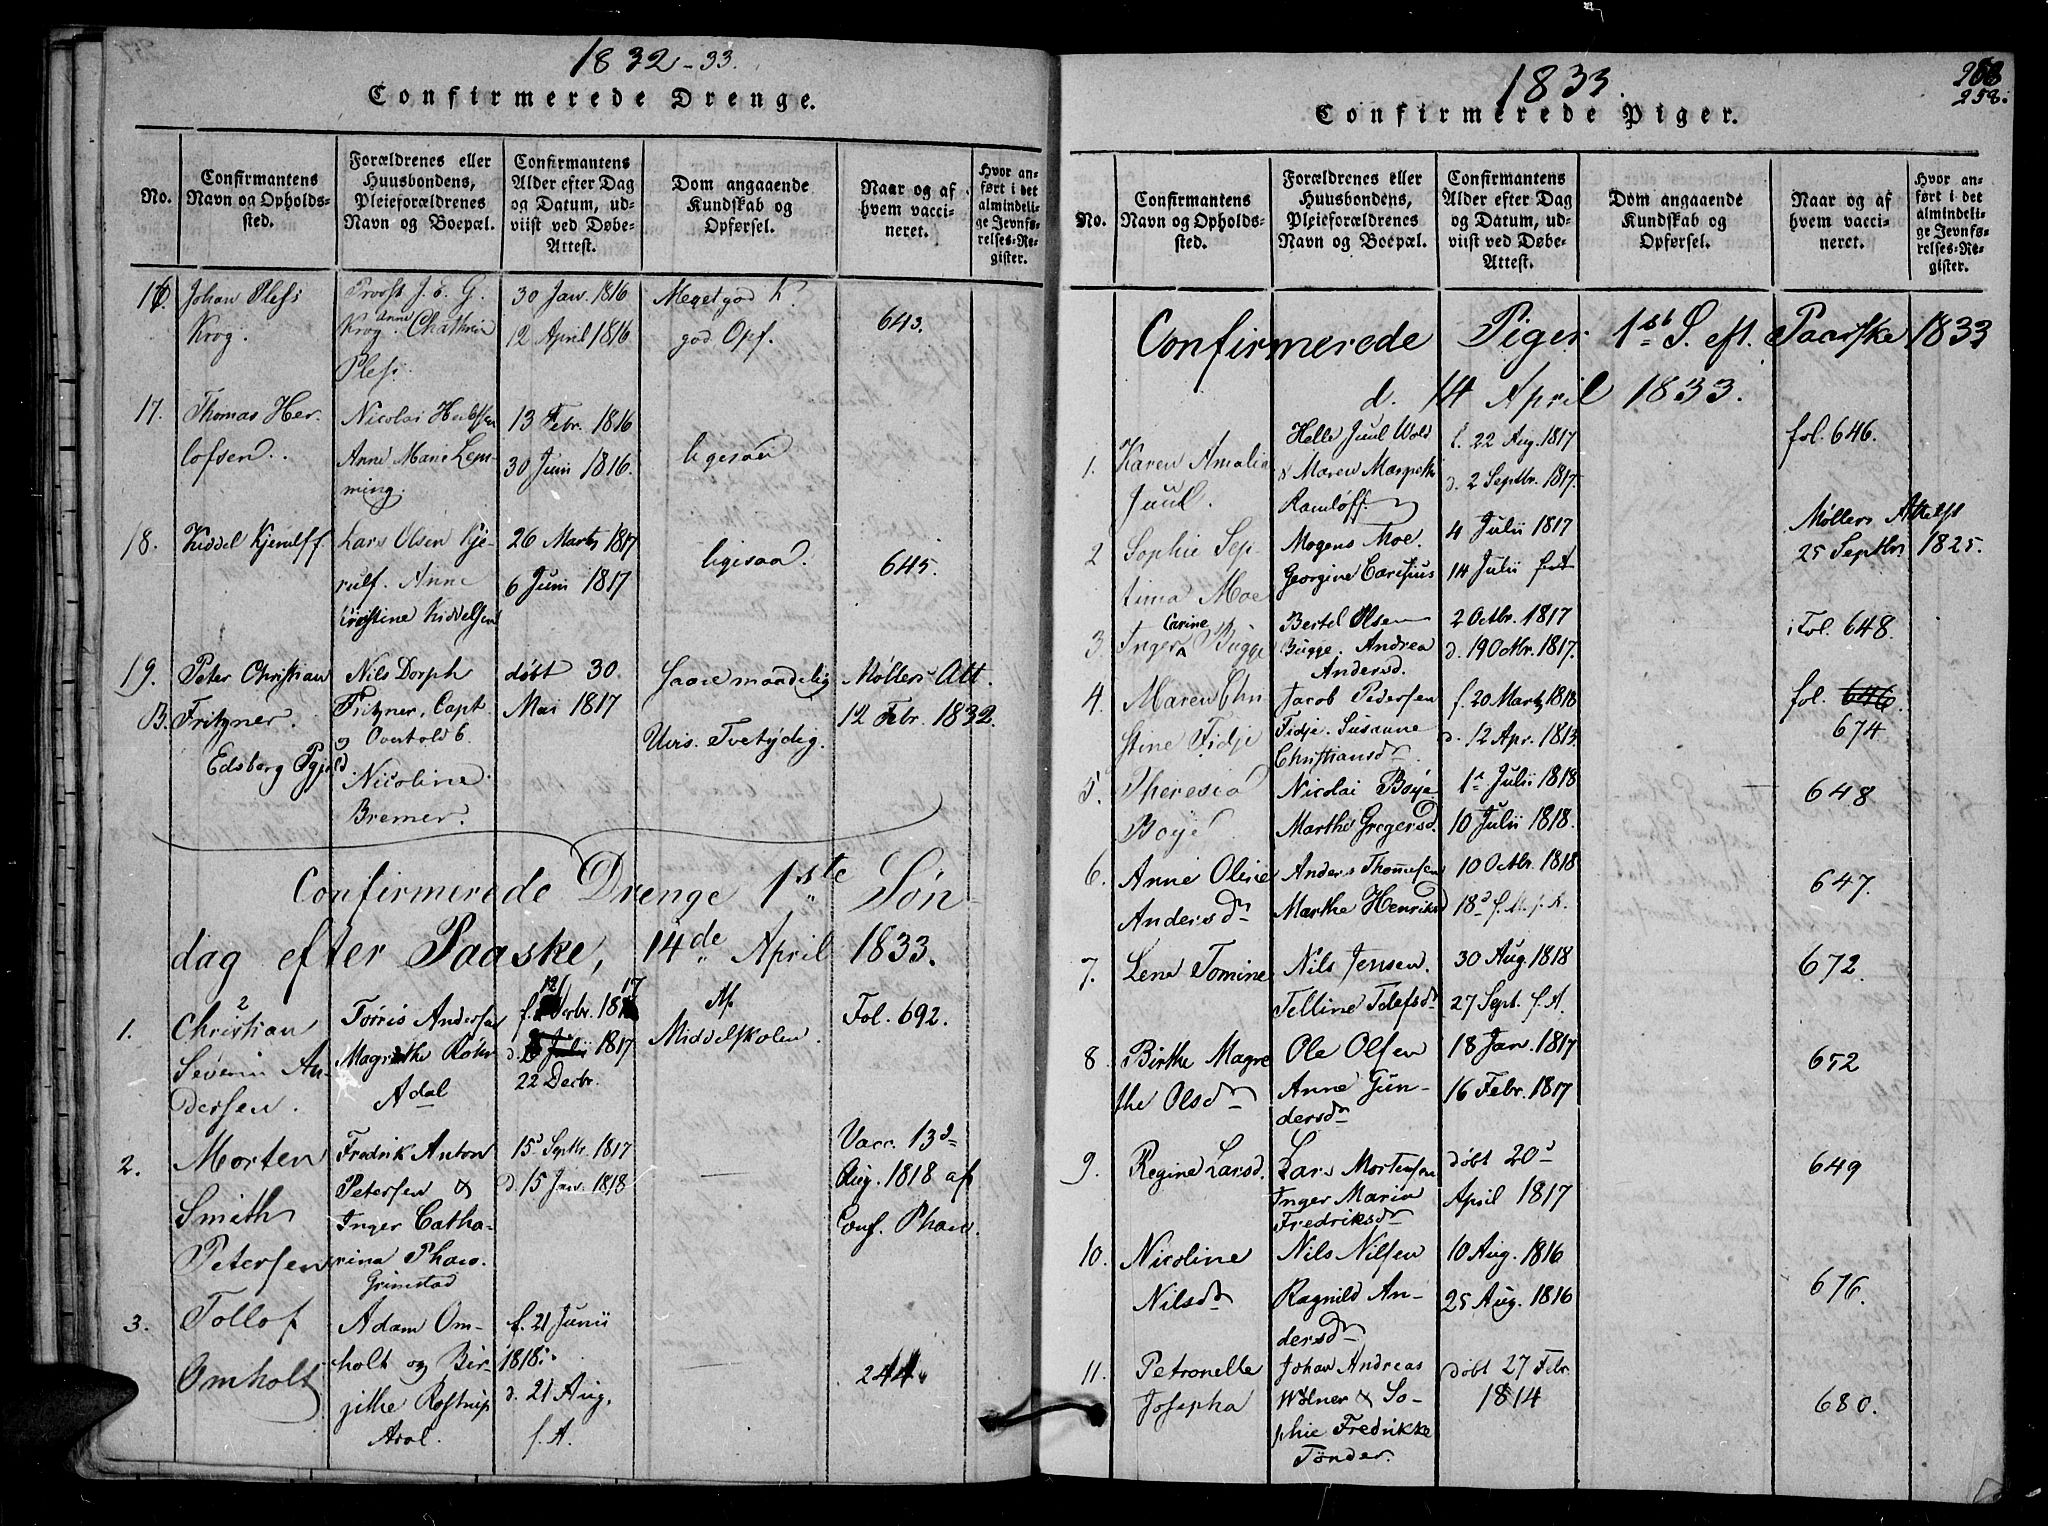 1832-33.
Confirmerede Drenge.
No.
Confirmantens
Navn og Opholds-
sted.
Forældrenes eller
Huusbondens,
Pleieforældrenes
Navn og Boepæl.
Confirmantens
Alder efter Dag
og Datum, ud-
viist ved Døbe-
Attest.
Dom angaaende
Kundskab og
Opførsel.
Naar og af
hvem vacci-
neret.
Hvor an-
ført i det
almindeli-
ge Jevnfø-
relses-Re-
gister.
16
Johan Pless
Krog.
Provst J. E. G.
Krog. Anne Chathrin
Pless.
30 Jan. 1816
12 April 1816
Meget god K.
god Opf.
643.
17.
Thomas Her-
lofsen.
Nicolai Herlofsen
Anne Marie Lem-
ming.
13 Febr. 1816
30 Juni 1816.
ligesaa
18.
Kiddel Kjerulff.
Lars Olsen Kje-
rulf. Anne
Cristine Kiddelsen
26 Marts 1817
6 Juni 1817
ligesaa.
645.
19.
Peter Christian
B. Fritzner.
Edsberg Pgjeld.
Nils Dorph
Fritzner, Capt.
og
Nicoline
Bremer.
døbt 30.
Mai 1817
Saare maadelig
Tvetydig.
Møllers Att.
12 Febr. 1832.
Confirmerede Drenge 1ste Søn-
dag efter Paaske, 14de April 1833.
1.
Christian
Severin An-
dersen.
Tørris Andersen
Magrethe
Adal
f. 12 Decbr. 1817
d. 1817
22 Decbr.
Af
Middelskolen.
Fol. 692.
2.
Morten
Smith
Petersen
Fredrik Anton
Petersen &
Inger Catha-
rina Pharo.
Grimstad
15d Septbr. 1817
d. 15 Jan. 1818
Vacc. 13d
Aug. 1818 af
Conf. Pharo.
3.
Tollof
Omholt
Adam Om-
holt og Bir-
gitke Rostrup
f. 21 Junii
1818.
d. 21 Aug.
s. A.
244.
1833.
258.
Confirmerede Piger.
No.
Confirmantens
Navn og Opholds-
sted.
Forældrenes eller
Huusbondens,
Pleieforældrenes
Navn og Boepæl.
Confirmantens
Alder efter Dag
og Datum, ud-
viist ved Døbe-
Attest.
Dom angaaende
Kundskab og
Opførsel.
Naar og af
hvem vacci-
neret.
Hvor an-
ført i det
almindeli-
ge Jevnfø-
relses-Re-
gister.
Confirmerede Piger 1st S. eft. Paaske 1833
d. 14 April 1833.
1.
Karen Amalia
Juul.
Helle Juul Wold
& Maren Margreth
Ramløff.
f. 22 Aug. 1817
d. 2 Septbr. 1817.
fol. 646.
2
Sophie Sep-
tima Moe
Mogens Moe.
Georgine Carisius
4 Julii 1817
14 Julii
Møllers Attest
25 Septbr 1825.
3.
Inger Carine Bugge
Bertel Olsen
Bugge. Andrea
Andersd.
2 Octbr. 1817
d. 19 Octbr. 1817.
Fol. 648.
4.
Maren Chri-
stine Fidje
Jacob Pedersen
Fidje. Susanne
Christiansd.
f. 20 Marts 1818
d. 12 Apr. 1813.
fol. 646.
674.
5.
Theresia
Boye
Nicolai Boye
Marthe Gregersd.
1 Julii 1818
10 Julii 1818.
648
6.
Anne Olive
Andersd
Anders Thommesen
Marthe Henriksd
10 Octbr. 1818
18d s. M. s. A.
647.
7.
Lena Tomine
Nils Jensen.
Telline Tolefsd
30 Aug. 1818
27 Sept. s. A.
672.
8
Birthe Magre
the Olsd
Ole Olsen
Anne Gun-
dersd
18 Jan. 1817
16 Febr. 1817
652
9.
Regine Larsd.
Lars Mortensen
Inger Maria
Fredriksd
døbt 20d
April 1817
649
10.
Nicoline
Nilsd
Nils Nilsen
Ragnild An-
dersd
10 Aug. 1816
25 Aug. 1816
676.
11.
Petronelle
Josepha
Johan Andreas
Wolner & So-
phie Fredrikke
Tønder.
døbt 27 Febr
1814
680.